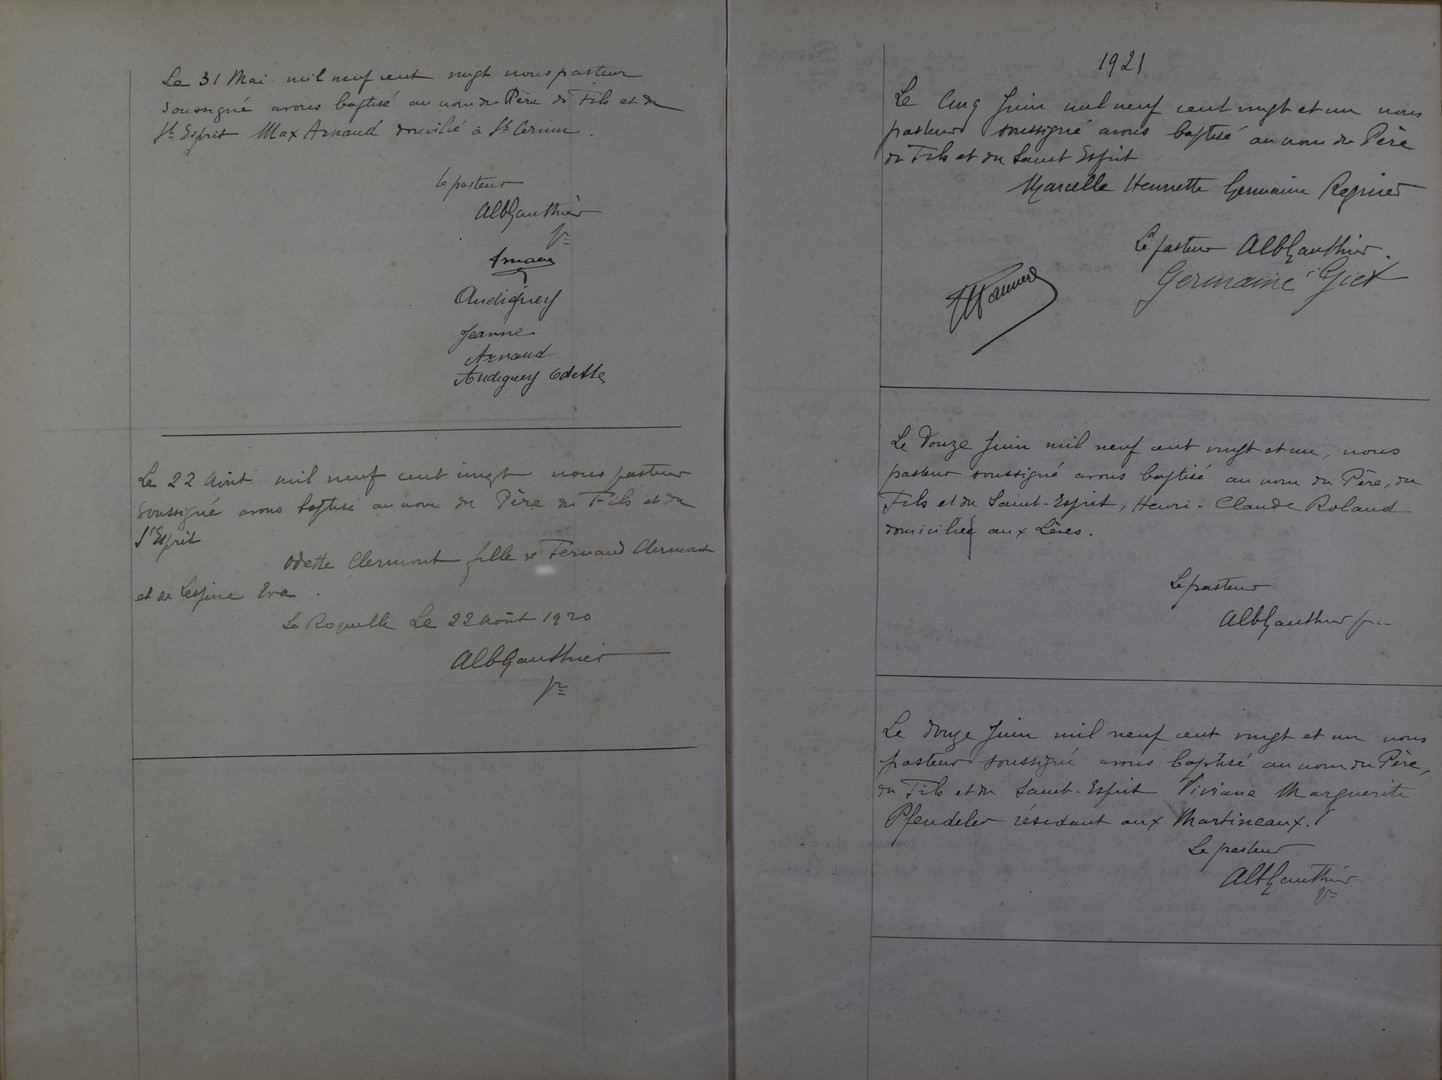 Le 31 Mai mil neuf cent vingt nous pasteur
soussigné avons baptisé au nom du Père du Fils et du
St Esprit Max Arnaud domicilié à St Cernin.
le pasteur
AlbGauthier
pr
Arnaud
Audiguey
Jeanne
Arnaud
Audiguey Odette
Le 22 Août mil neuf cent vingt nous pasteur
soussigné avons baptisé au nom du Père du Fils et du
St Esprit
Odette Clermont fille de Fernand Clermont
et de Lespine Eva.
La Roquille Le 22 Août 1920
AlbGauthier
pr
1921
Le Cinq Juin mil neuf cent vingt et un nous
pasteur soussigné avons baptisé au nom du Père
du Fils et du Saint Esprit
Marcelle Henriette Germaine Regnier
Le pasteur AlbGauthier.
Germaine Giet
Le Douze Juin mil neuf cent vingt et un, nous
pasteur soussigné avons baptisé au nom du Père, du
Fils et du Saint-Esprit, Henri-Claude Roland
domicilié aux Lères.
Le pasteur
AlbGauthier pr
Le douze Juin mil neuf cent vingt et un nous
pasteur soussigné avons baptisé au nom du Père,
du Fils et du Saint-Esprit Viviane Marguerite
Pfendeler résidant aux Martineaux.
Le pasteur
AlbGauthier
pr